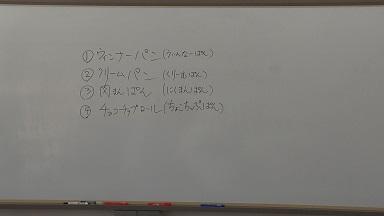 ① ウィンナーパン (うぃんなーぱん)
② クリームパン (くりーむぱん)
③ 肉まんぱん (にくまんぱん)
④ チョコチップロール (ちょこちっぷぱん)